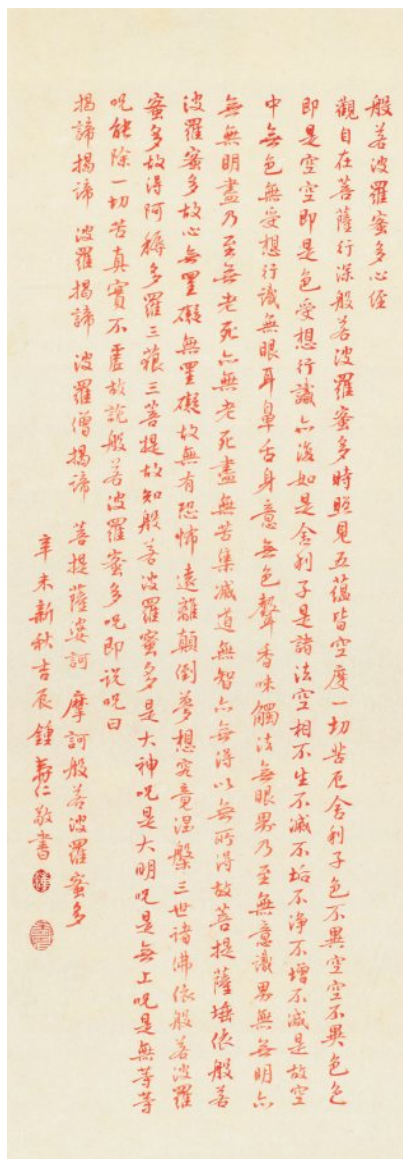 般若波羅蜜多心經
觀自在菩薩行深般若波羅蜜多時照見五蘊皆空度一切苦厄舍利子色不異空空不異色色
即是空空即是色受想行識亦復如是舍利子是諸法空相不生不滅不垢不淨不增不減是故空
中無色無受想行識無眼耳鼻舌身意無色聲香味觸法無眼界乃至無意識界無無明亦
無無明盡乃至無老死亦無老死盡無苦集滅道無智亦無得以無所得故菩提薩埵依般若
波羅蜜多故心無罣礙無罣礙故無有恐怖遠離顛倒夢想究竟涅槃三世諸佛依般若波羅
蜜多故得阿耨多羅三藐三菩提故知般若波羅蜜多是大神咒是大明咒是無上咒是無等等
咒能除一切苦真實不虛故說般若波羅蜜多咒即說咒曰
揭諦揭諦 波羅揭諦 波羅僧揭諦 菩提薩婆訶 摩訶般若波羅蜜多
辛未新秋吉辰鍾壽仁敬書